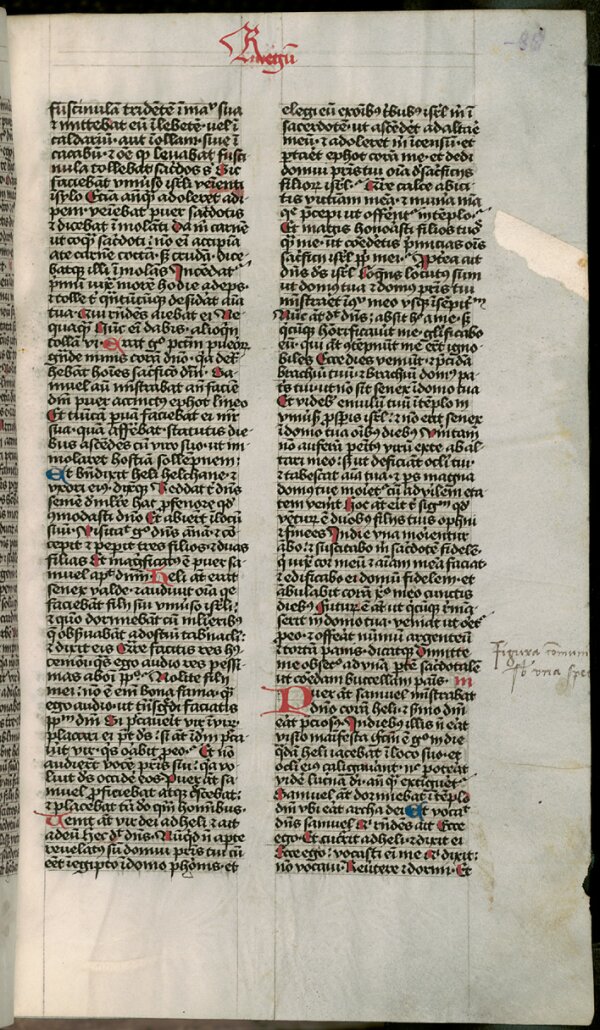 R
Regū
fuscinulā tridētē ī mau sua
⁊ mittebat eū ī lebetē · vel ī
caldariū · aut ī ollam · siue ī
cacabū · ⁊ oē qᵈ leuabat fusci
nula tollebat sacdos s̄ · Sic
faciebāt vniūso isrlī veīenti
ī sylo Etiā anqᵃ adolerēt adi
pem · veiebat puer sacdotis
⁊ dicebat īmolāti Da m̄ carnē
ut coqᵃ sacdoti: no eī accipiā
a te carnē coctā · s; crudā · dice
batqꝫ illi īmolās Incēdatʳ
tua · Cui rn̄dēs aiebat ei Ne
quaqᵃ Nūc eī dabis · alioqn
tollā vi · Erat gᵒ pctm̄ pueorꝫ
gᵃnde nimis corā dnō · qᵃ det
hebāt hoīes sacficio dn̄i · Sa
muel aū mistrabat an̄ faciē
dn̄i puer accinctus ephot lineo
Et tūicā puā faciebat ei mr̄
sua · quā affēbat · statutis die
bus ascēdēs cū viro suo · ut im
molaret hostiā sollēpnem:
Et bn̄dixit heli helchane · ⁊
vxori eiꝰ · dixqꝫ Reddat t̄ dns̄
semē d mlīe hac p̄ fenore qᵈ
9modasti dnō Et abierūt ī locū
suū · Visitaᵗ gᵒ dn̄s ānā · ⁊ cō
cepit ⁊ peperit tres filios · ⁊ duas
filias Et magīficatꝰ ē puer sa
muel apᵈ dnm̄ Heli āt erat
senex valde · ⁊ audiuit oīa qᵉ
faciebāt filii sui vniūso isrli:
⁊ quō dormiebāt cū mlierībꝰ
qᵉ obsuabāt ad ostiū tabnacli:
⁊ dixit eis Qᵃre facitis res hꝰ
cemōi · qᵃs ego audio res pessi
mas ab oī pplō · Nolite filii
mei: no ē eī bona fama · qᵃ
ego audio · ut tn̄sgrediᵗ faciatis
pplm̄ dn̄i Si pctauerit vir ī virū
placari ei pt̄ ds̄: si āt ī dnm̄ pcta
uit vir · qis oabit p eo · Et nō
audierūt vocē pris̄ sui: qᵃ vo
luit ds̄ occidē eos Puer āt sa
muel p̄ficiebat atqꝫ cscebat:
⁊ placebat tā dō qᵃm hominibus ·
Venit āt vir dei ad heli ⁊ ait
ad eū Hec dᵗ dns̄ · Nūqd n̄ apte
reuelatꝰ sū domui pris̄ tui cū
eēt ī egipto ī domo phōnis · et
elegi eū ex oībꝰ tbubꝰ isrl̄ m̄ ī
sacerdotē · ut ascēdēt ad altāe
meū · ⁊ adoleret m̄ īcēsū · et
ptāet ephot corā me · et dedi
domui pris̄ tui oīa d sacficiis
filiorꝫ isrl̄ · Qᵃre calce abici
tis victiam meā · ⁊ mūīa mīa
qᵉ p̄cepi ut offerent ī templo · ⁊
Et magis honoasti filios tuos
qᵃ me · ut cōedetis pmicias oīs
sacficii isrl̄ pplī mei · P̄ptea ait
dn̄s ds̄ isrl̄ Loquēs locutus sum
ut domꝰ tua ⁊ domꝰ pris̄ tui
mīstraēt ī ɔspcū meo vsqꝫ ī sepitʳn̄
Nūc āt dᵗ dns̄: absit hᵒ a me · s;
qīcūqꝫ honificauit me · glificabo
eū · qui āt ɔtēpnūt me eēt igno
biles Ecce dies veniūt · ⁊ pcidā
brachiū tuū · ⁊ brachiū domꝰ pa
tis tui · ut no sit senex ī domo tua
Et videbˢ emulū tuū ī tēplo ī
vniūsꝭ p̄spis isrl̄: ⁊ no erit senex
ī domo tua oībꝰ diebꝰ Vntam̄
no auferā peītꝰ virū ex te · ab al
tari meo: s; ut deficiāt ocli tui ·
⁊ tabescat aīa tua · ⁊ ps magna
domꝰ tue moietʳ cū ad virilem eta
tem veīit Hoc āt eīt t̄ sigᵐ qᵈ
vētur ē duobꝰ filiis tuis ophni
⁊ finees In die vna moientur
abo: ⁊ suscitabo m̄ sacdotē fidelē ·
qui iuxᵗ cor meū ⁊ aīam meā faciat
⁊ edificabo ei domū fidelem · et
abulabit corā xpō meo cunctis
diebꝰ Futurū ē āt ut qīcūqꝫ rēmāˢ
serit in domo tua · veniat ut oēt
p eo · ⁊ offerat nūmū argenteū
⁊ tortā panis · dicatqꝫ Dimitte
me obscᵒ ad vnā ptē sacdotalē
ut cōedam buccellam paīs · III
Puer āt samuel mīstrabat
dnō corā heli: ⁊ sīmo dn̄i
eāt pciosꝰ · In diebꝰ illis n̄ eāt
visio maīfesta Fcm̄ ē gᵒ in die
qdā heli iacebat ī loco suo · et
ocli eiꝰ caligauant · nec potāt
vidē lucnā di · an̄ qᵃ extigetʳ ·
Samuel āt dormiebat ī tēplo
dn̄i vbi eāt archa dei Et vocaᵗ
dns̄ samuel Qⁱ rn̄dēs ait Ecce
ego · Et cucīt ad heli · ⁊ dixit ei
Ecce ego: vocasti eī me Qⁱ dixit:
no vocaui · Reutere ⁊ dormi · Et
Figura cōmuni
sb vna spe